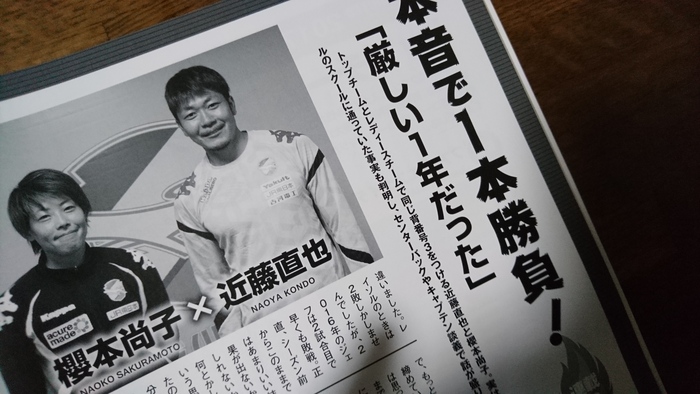 本音で1本勝負!
「厳しい1年だった」
トップチームとレディースチームで同じ背番号3をつける近藤直也と櫻本尚子。実は
ルのスクールに通っていた事実も判明し、センターバックやキャプテン談義で話が盛り
近藤直也
NAOYA KONDO
×
櫻本尚子
NAOKO SAKURAMOTO
Kappa
acure
made
違いました。レ
イソルのときは
2敗しかしませ
んでしたが、2
016年のジェ
フは2試合目で
早くも敗戦。正
直、シーズン前
からこのままで
はあまりいい
果が出ないか
しれない
何とかし
いう思
たの
分
で、もっと
締めて